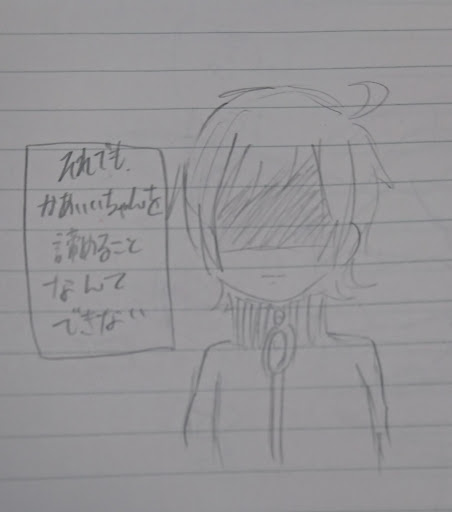 それでも、
かあいいちゃんを
諦めること
なんて
できない